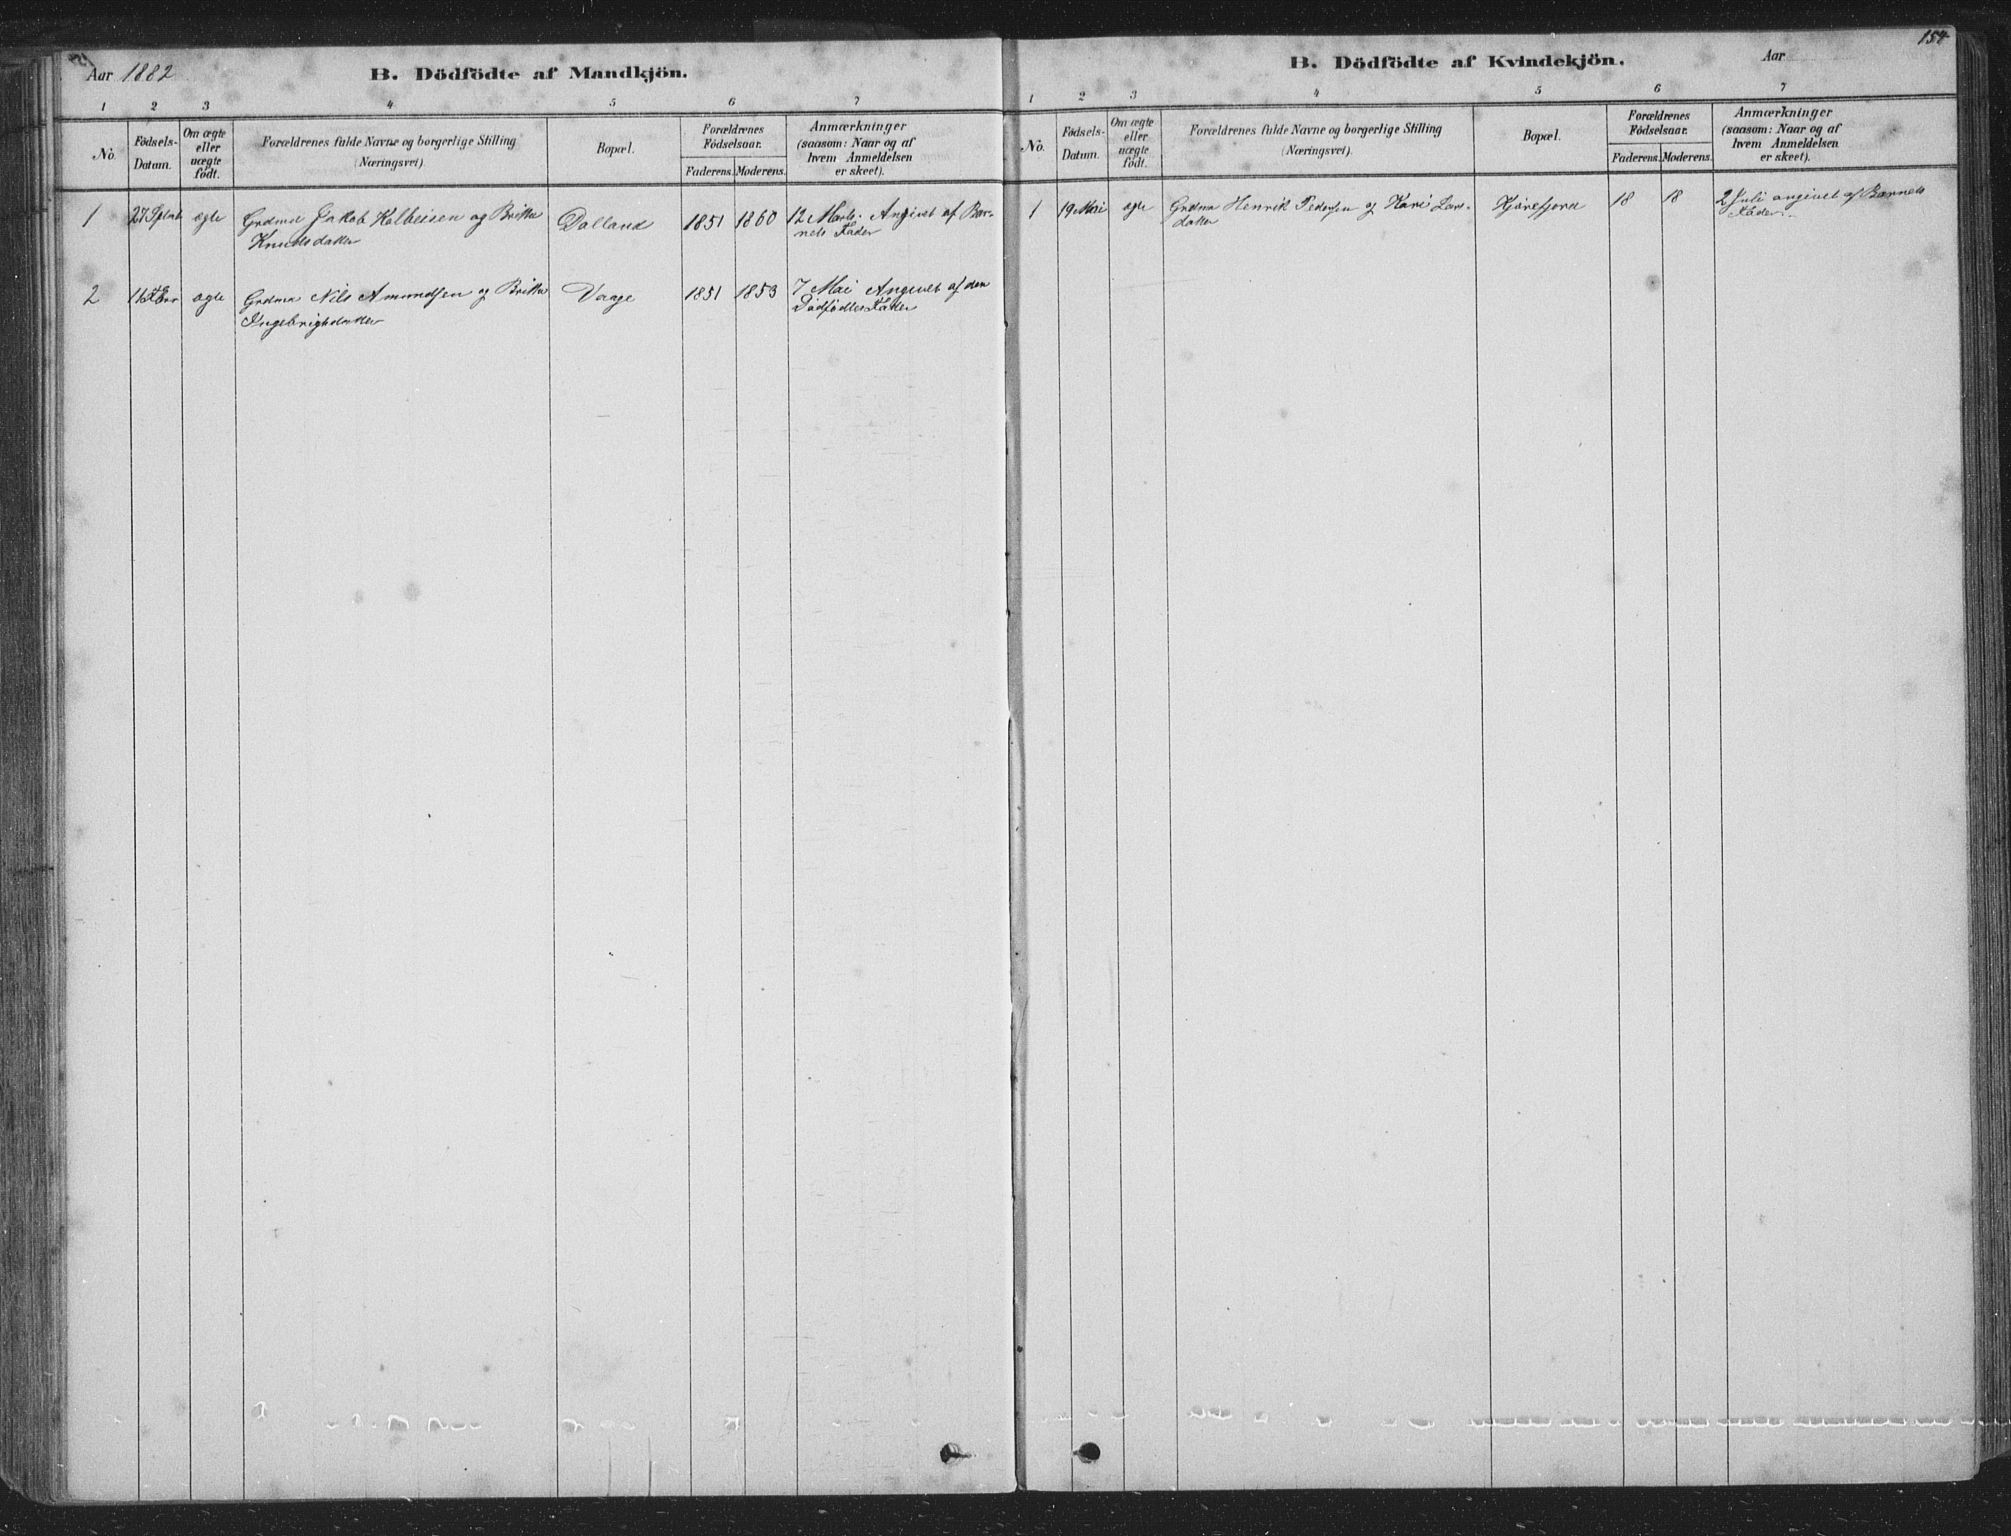 Aar 1882
B. Dödfödte af Mandkjön.
1 2 3 4 5 6 7
No. Födsels-Datum. Om ægte eller uægte födt. Forældrenes fulde Navne og borgerlige Stilling (Næringsvei). Bopæl. Forældrenes Födselsaar. Faderens. Moderens. Anmærkninger (saasom: Naar og af hvem Anmeldelsen er skeet).
1 27 ægte Grdmd Jakob Kolbeisen og Britha Dalland 1851 1860 12 Marts. Angivet af Bar-
Knudsdatter nets Fader
2 16 Febr ægte Grdma Nils Amundsen og Britha Vaage 1851 1853 7 Mai Angivet af den
Ingebrigtsdatter Dødfødtes Fader
154
B. Dödfödte af Kvindekjön.
Aar
1 2 3 4 5 6 7
No. Födsels-Datum. Om ægte eller uægte födt. Forældrenes fulde Navne og borgerlige Stilling (Næringsvei). Bopæl. Forældrenes Födselsaar. Faderens. Moderens. Anmærkninger (saasom: Naar og af hvem Anmeldelsen er skeet).
1 19 Mai ægte Grdma Henrik Pedersen og Kari Lars- 18 18 2 Juli angivet af Barnets
datter Fader.